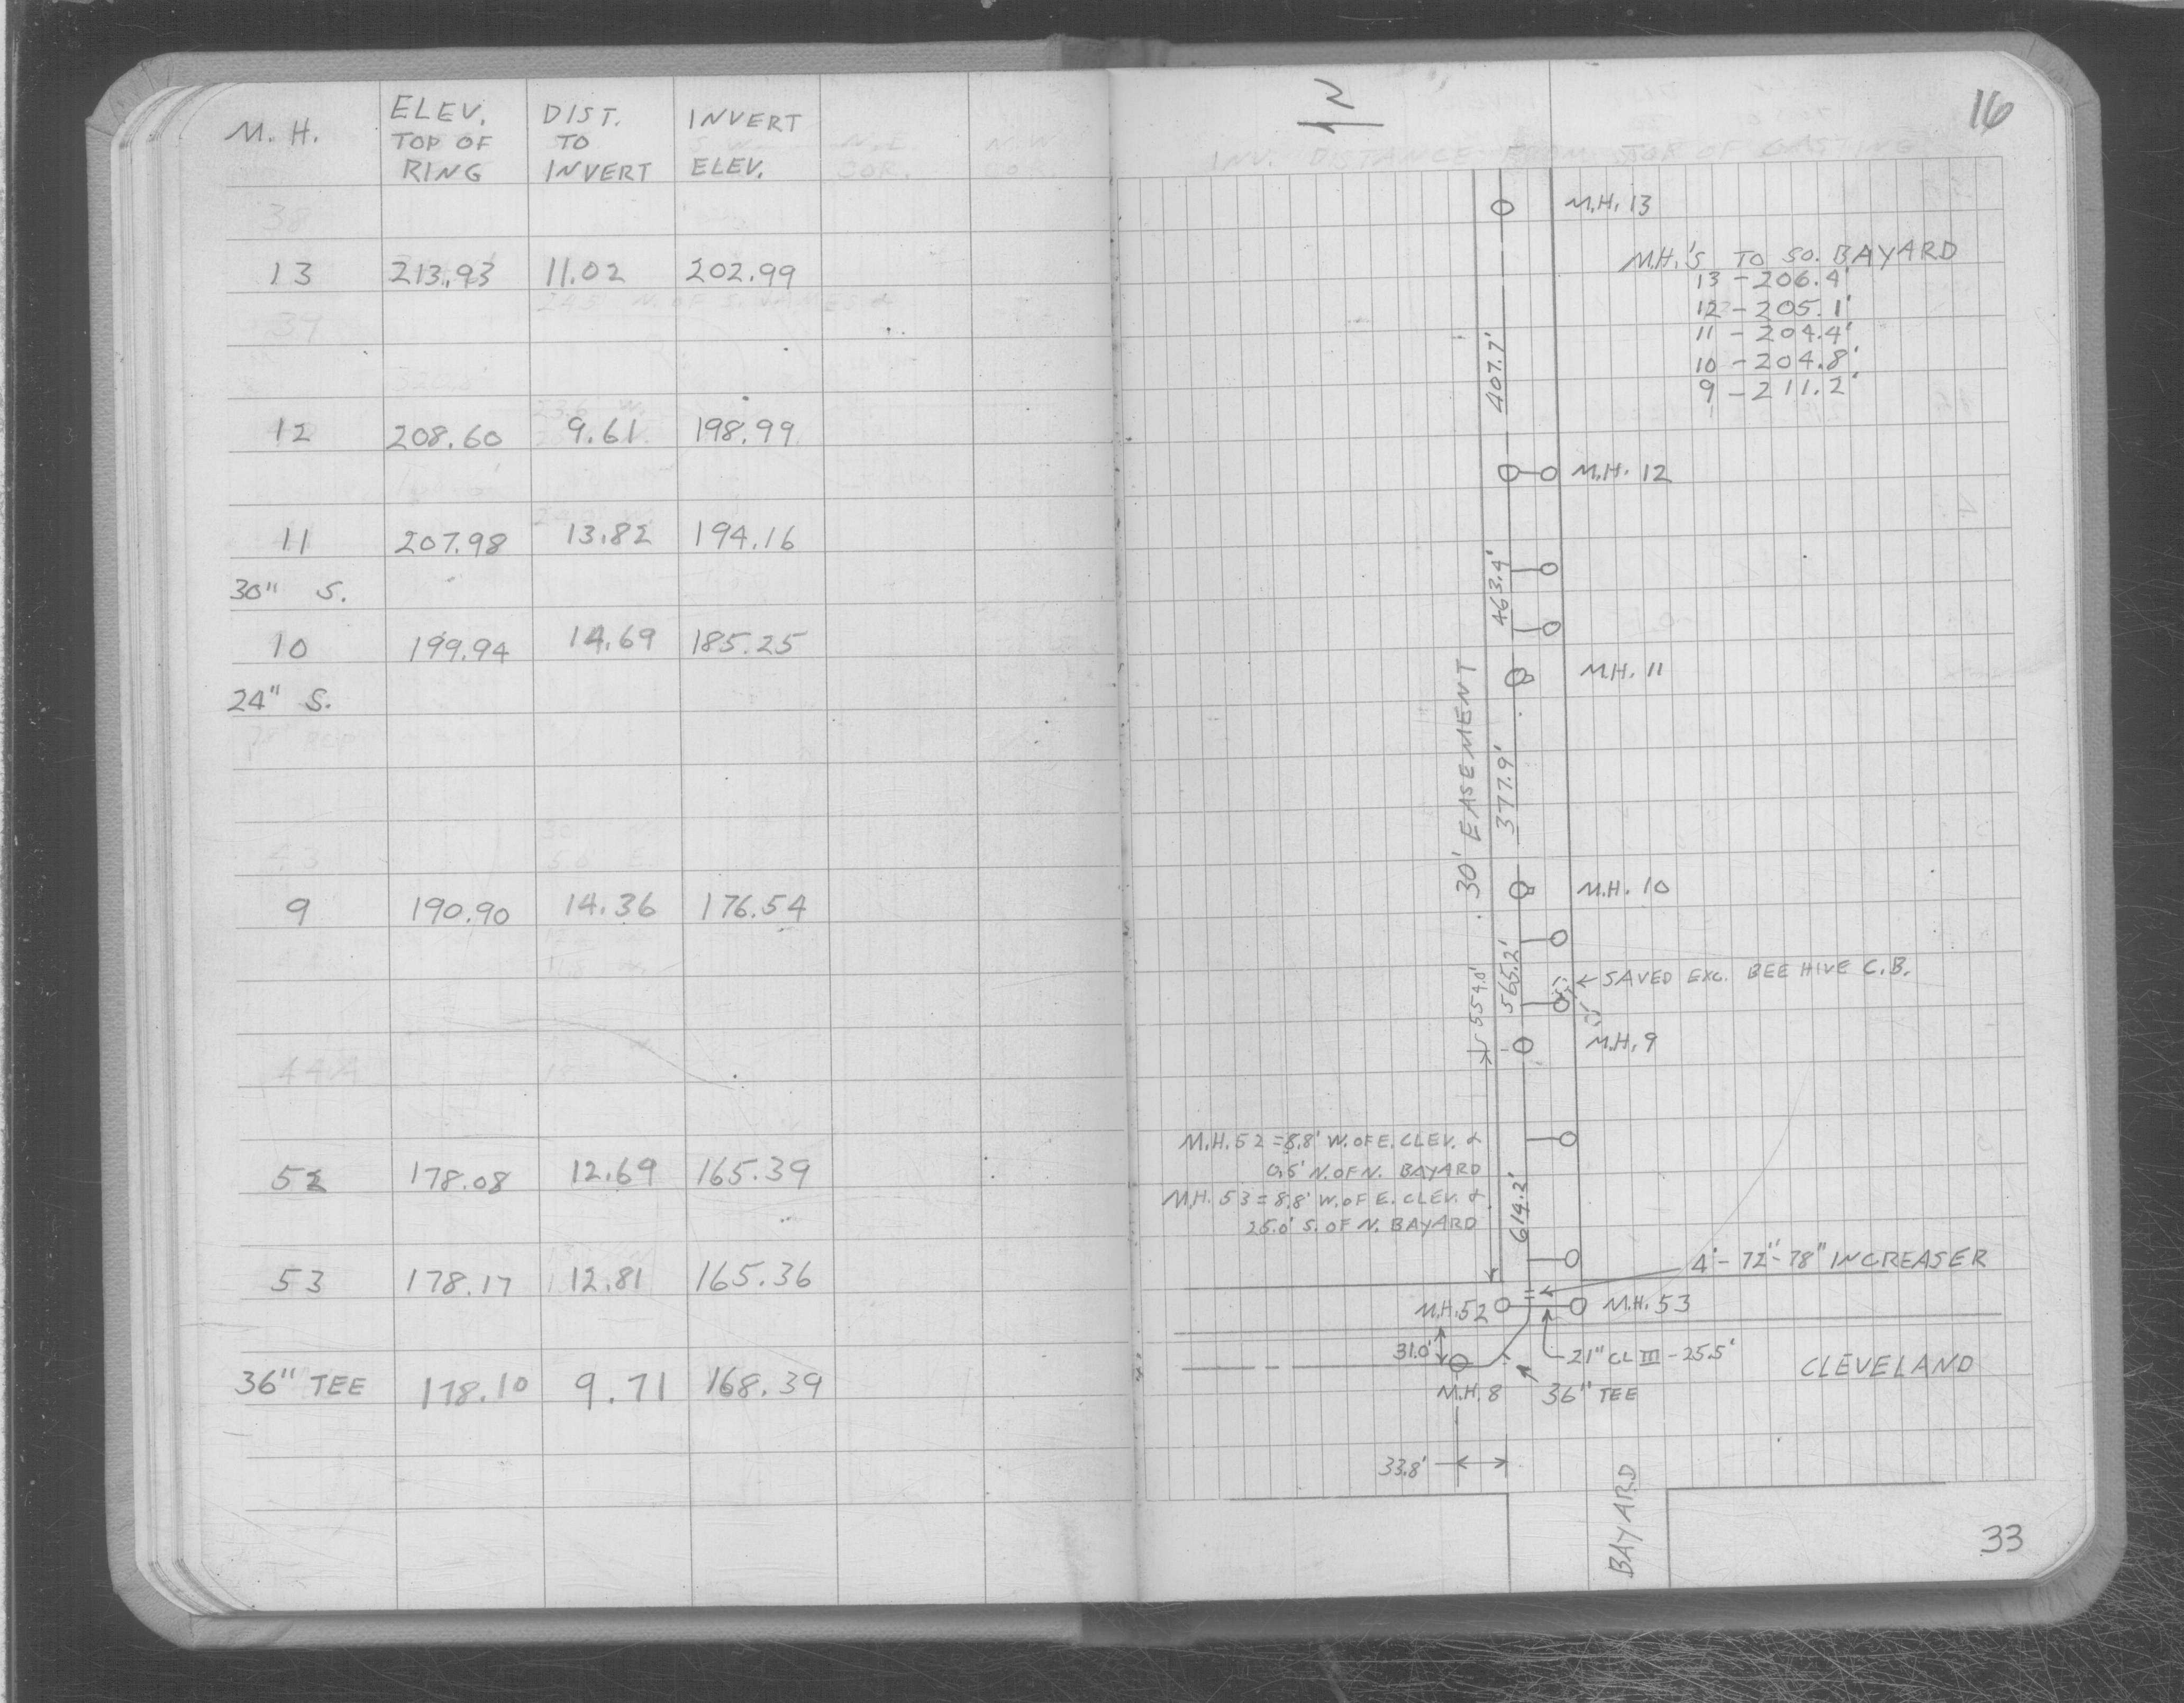 M. H.
ELEV. TOP OF RING
DIST. TO INVERT
INVERT ELEV.
13 213.93 11.02 202.99
12 208.60 9.61 198.99
11 207.98 13.82 194.16
30" S.
10 199.94 14.69 185.25
24" S.
9 190.90 14.36 176.54
52 178.08 12.69 165.39
53 178.17 12.81 165.36
36" TEE 178.10 9.71 168.39
16
INV. DISTANCE FROM TOP OF CASTING
M.H. 13
M.H.'S TO SO. BAYARD
13 - 206.4'
12 - 205.1'
11 - 204.4'
10 - 204.8'
9 - 211.2'
407.7'
M.H. 12
463.4'
M.H. 11
30' EASEMENT
377.9'
M.H. 10
565.2'
554.0'
SAVED EXC. BEE HIVE C.B.
M.H. 9
M.H. 52 = 8.8' W. OF E. CLEV. &
0.5' N. OF N. BAYARD
M.H. 53 = 8.8' W. OF E. CLEV. &
25.0' S. OF N. BAYARD
614.2'
4' - 72" - 78" INCREASER
M.H. 52
M.H. 53
31.0'
21" CL III - 25.5'
CLEVELAND
M.H. 8
36" TEE
33.8'
BAYARD
33